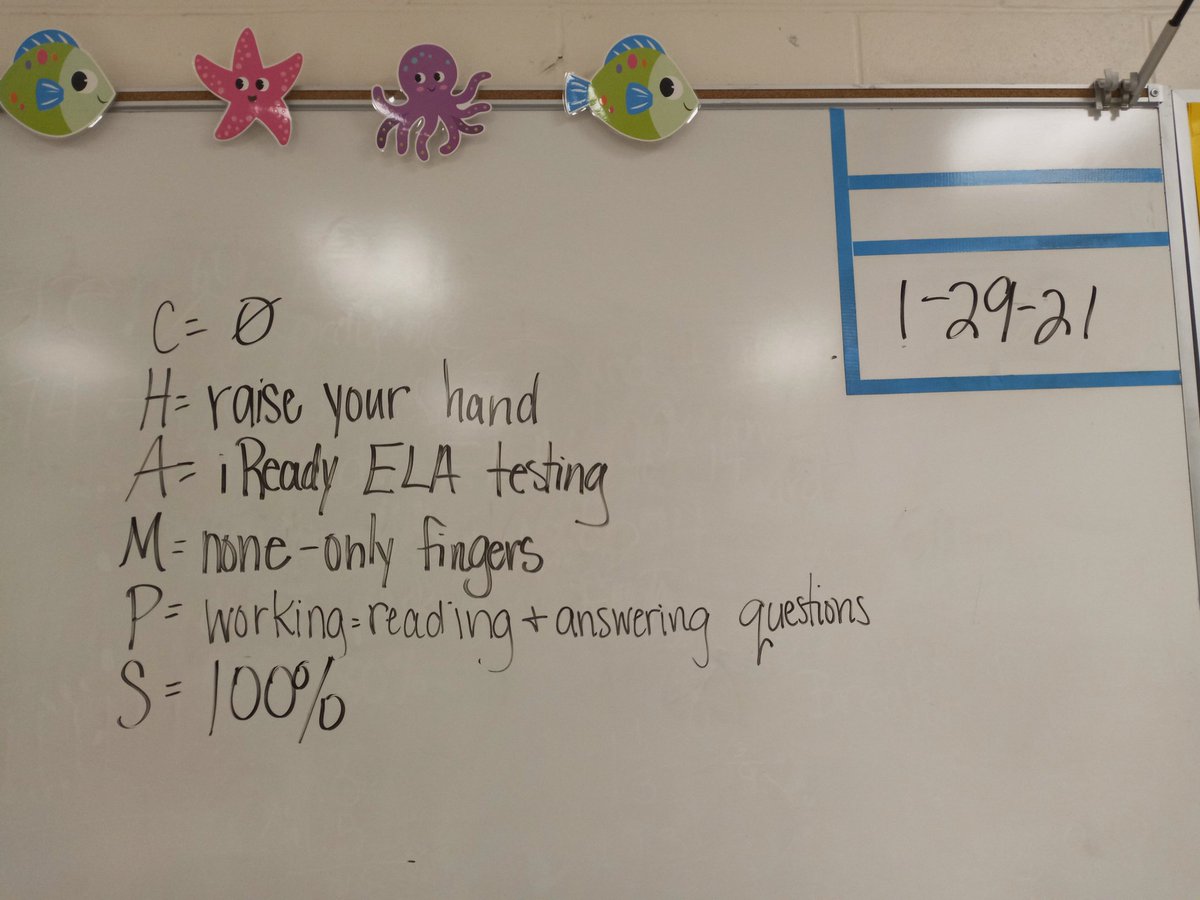 C = Ø
H = raise your hand
A = iReady ELA testing
M = none - only fingers
P = working = reading + answering questions
S = 100%
1-29-21